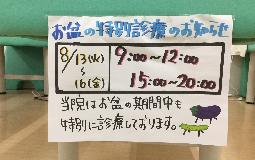 お盆の特別診療のお知らせ
8/13(火) 9:00〜12:00
〜
16(金) 15:00〜20:00
当院はお盆の期間中も
特別に診療しております。